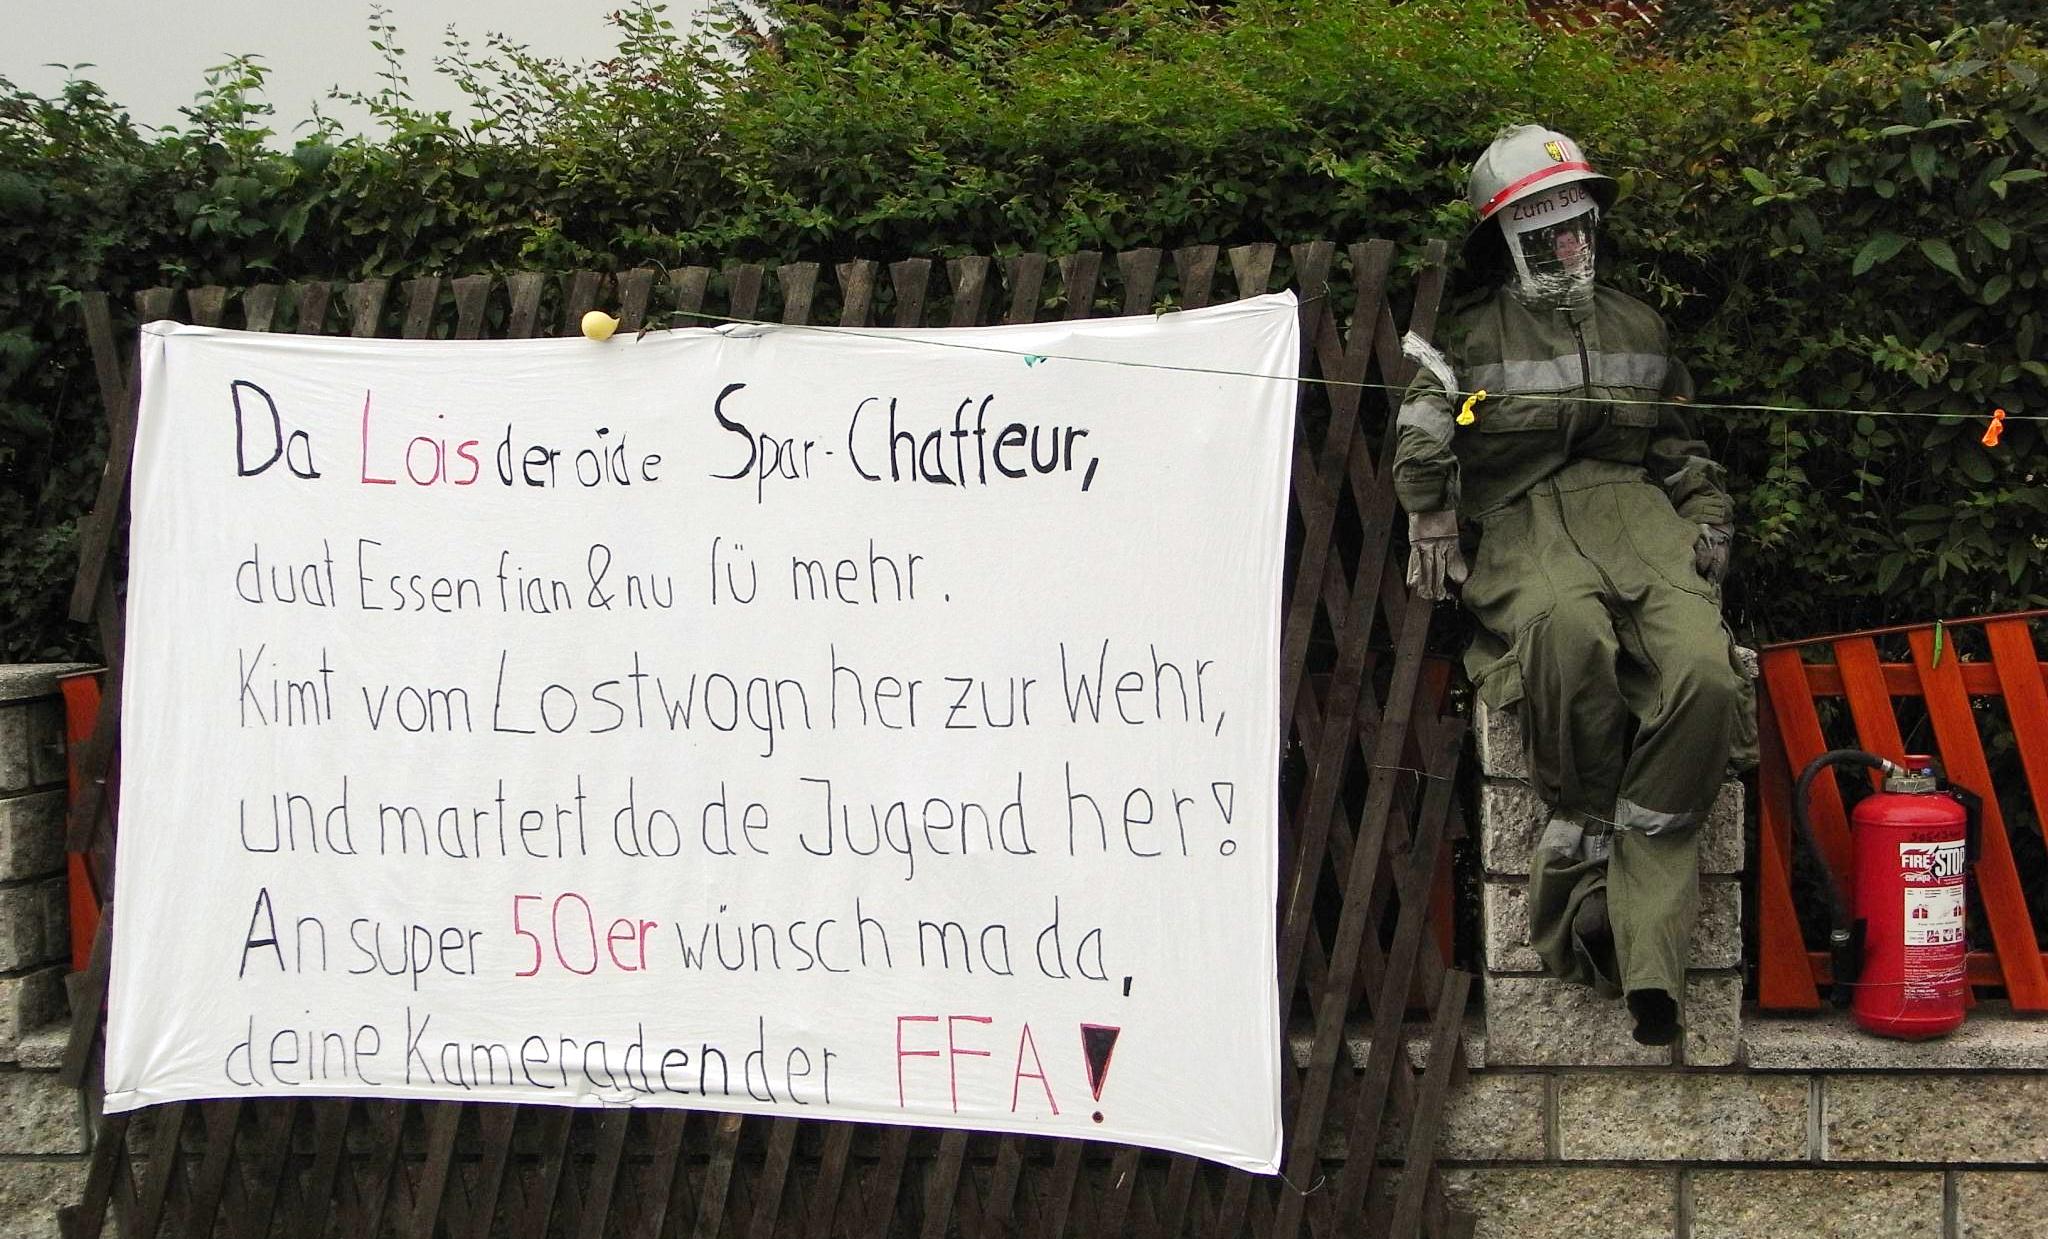 Da Lois der oide Spar-Chaffeur,
duat Essen fian & nu lü mehr.
Kimt vom Lostwogn her zur Wehr,
und martert do de Jugend her!
An super 50er wünsch ma da,
deine Kameraden der FFA!
Zum 50er
FIRE STOP